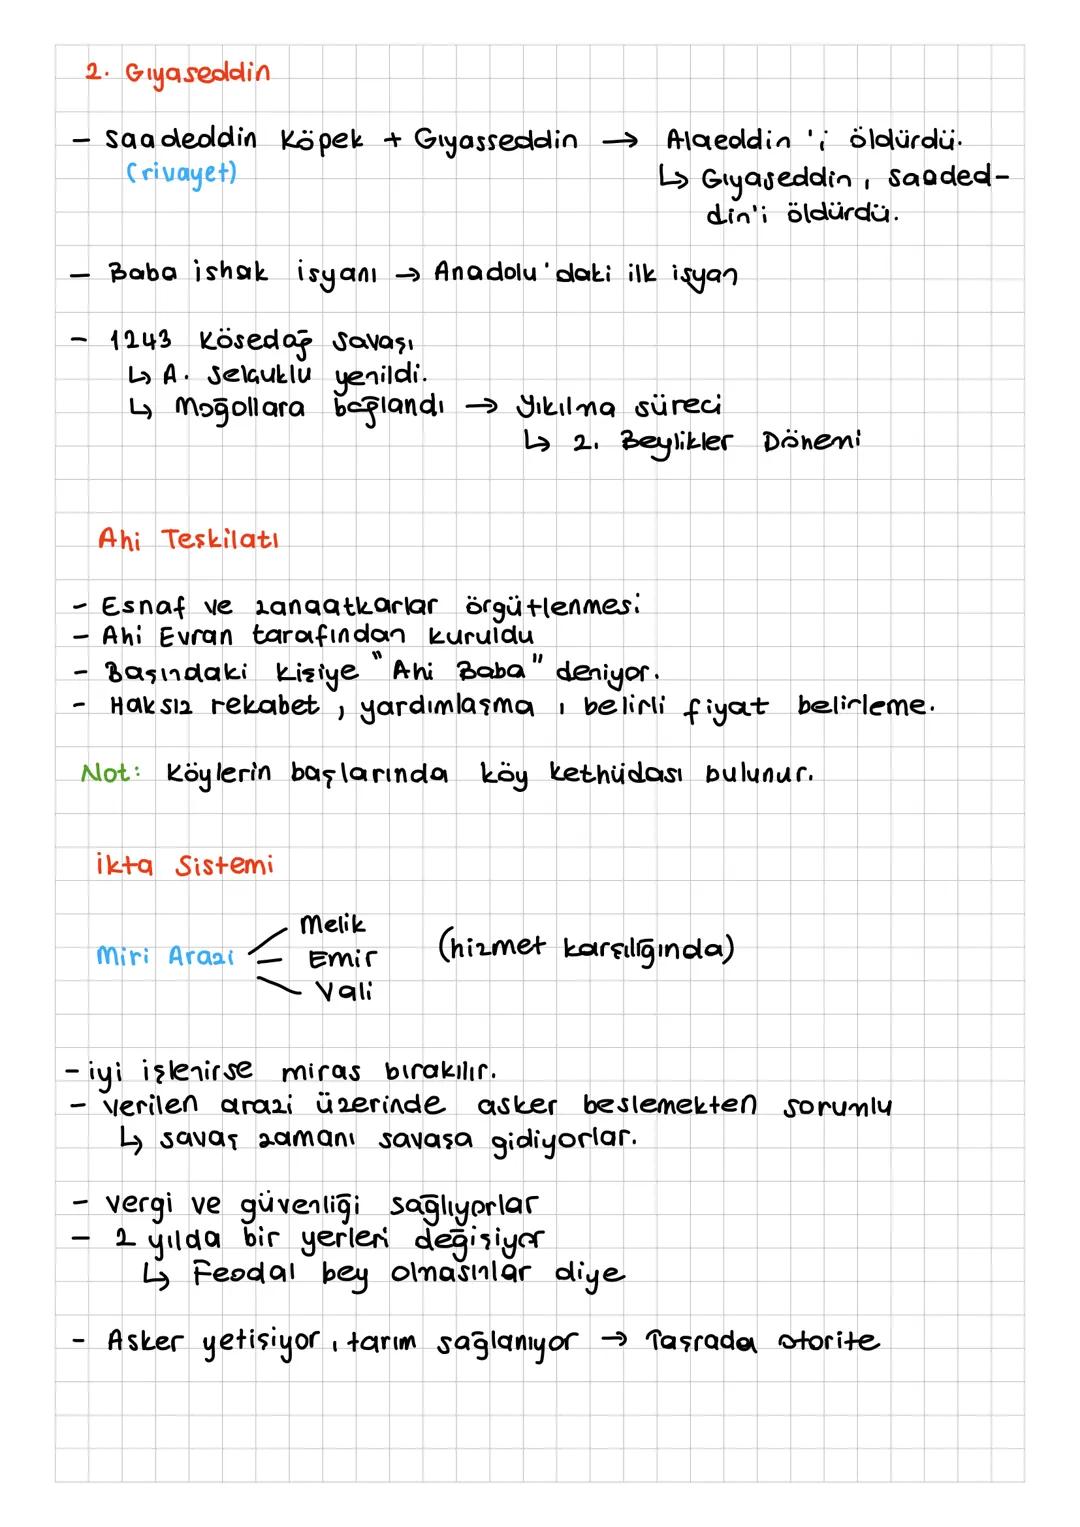 2. Gıyaseddin
- Saadeddin Köpek + Gıyasseddin → Alaeddin 'i öldürdü.
(rivayet)
↳ Gıyaseddin, saaded-
din'i öldürdü.
- Baba ishak isyanı → Anadolu'daki ilk isyan
- 1243 Kösedağ savaşı
↳ A. Selçuklu yenildi.
↳ Moğollara bağlandı → Yıkılma süreci
↳ 2. Beylikler Dönemi
Ahi Teşkilatı
- Esnaf ve zanaatkarlar örgütlenmesi
- Ahi Evran tarafından kuruldu
- Başındaki kişiye "Ahi Baba" deniyor.
- Haksız rekabet, yardımlaşma, belirli fiyat belirleme.
Not: Köylerin başlarında köy kethüdası bulunur.
İkta Sistemi
Melik
Miri Arazi Emir (hizmet karşılığında)
Vali
- iyi işlenirse miras bırakılır.
- verilen arazi üzerinde asker beslemekten sorumlu
↳ savaş zamanı savaşa gidiyorlar.
- vergi ve güvenliği sağlıyorlar
- 2 yılda bir yerleri değişiyor
↳ Feodal bey olmasınlar diye
- Asker yetişiyor, tarım sağlanıyor → Taşrada otorite